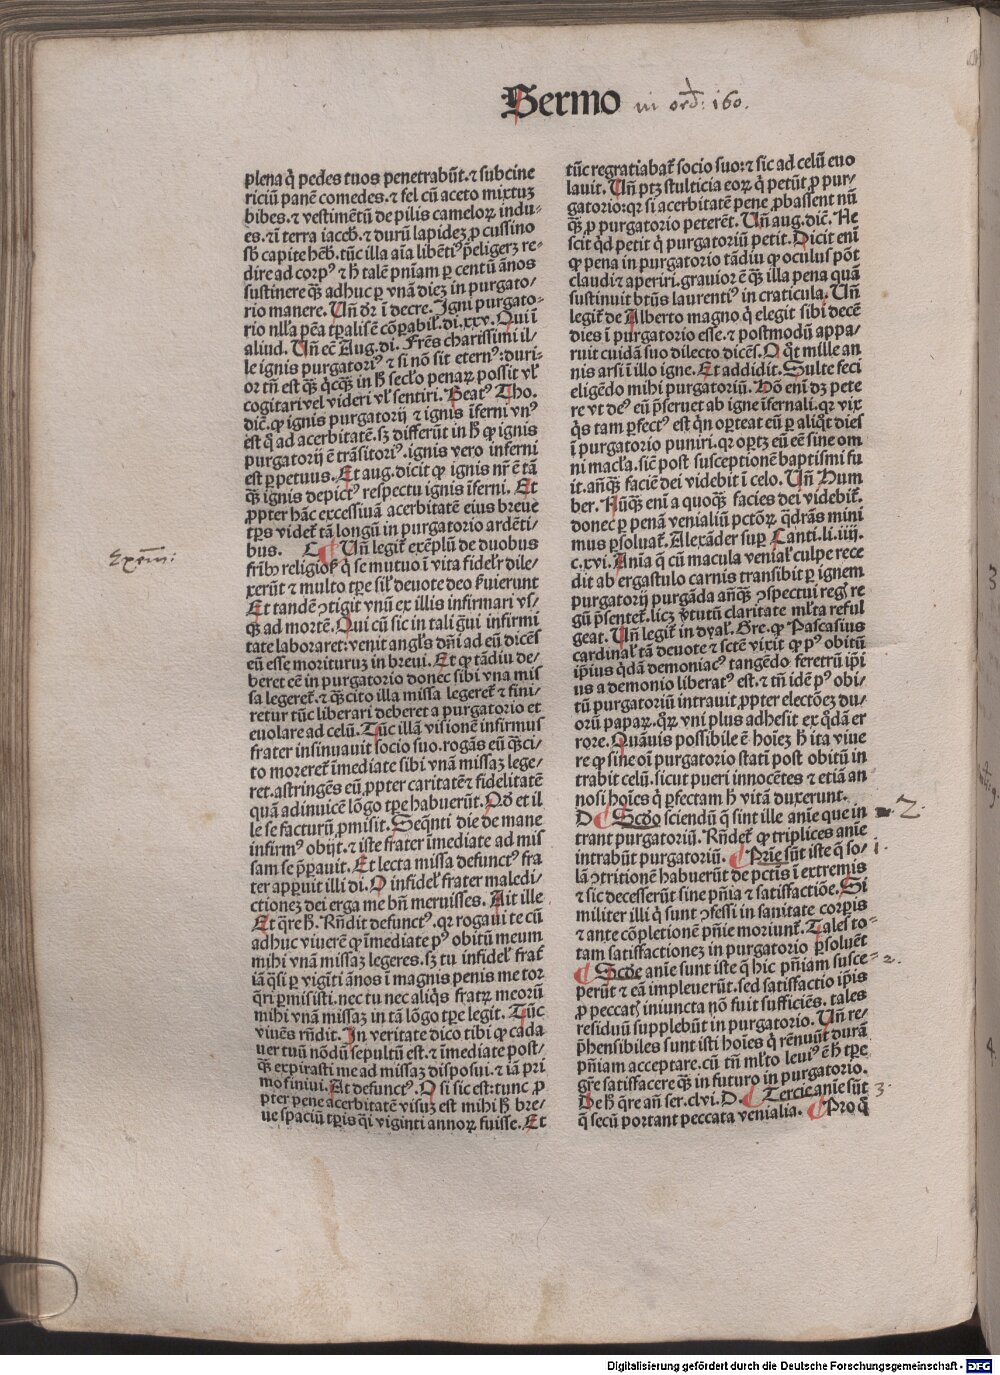 Sermo iii ord: 160.
plena q̇ pedes tuos penetrabūt. ⁊ subcine
riciū panē comedes. ⁊ fel cū aceto mixtuꝫ
bibes. ⁊ vestimētū de pilis cameloꝝ indu⸗
es. ⁊ ī terra iaceb̄. ⁊ durū lapideꝫ ꝓ cussino
sb̄ capite heb̄. tūc illa aīa libētiꝰ p̄eligerꝫ re⸗
dire ad corpꝰ ⁊ h̄ talē pn̄iam per centū ānos
sustinere q̄ꝫ adhuc ꝑ vnā dieꝫ in purgato⸗
rio manere. Vn̄ dr̄ ī decre. Igni purgato⸗
rio nll̄a pēa tp̄alis ē cōꝑabil̄. di. xxv. Qui ī
aliud. Vn̄ ec̄ Aug. di. Frēs charissimi il⸗
le ignis purgatoriꝰ ⁊ si nō sit eternꝰ: duri⸗
or tn̄ est q̄ꝫ q̇cq̄ꝫ in h̄ secl̄o penaꝝ possit vl̄
cogitari vel videri vl̄ sentiri. Beatꝰ Tho.
dic̄. ꝙ ignis purgatorij ⁊ ignis īferni vnꝰ
est q̇ ad acerbitatē. sꝫ differūt in h̄ ꝙ ignis
purgatorij ē trāsitoriꝰ. ignis vero inferni
est ꝑpetuus. Et aug. dicit ꝙ ignis nr̄ ē tā
q̄ꝫ ignis depictꝰ respectu ignis īferni. Et
ꝓpter hāc excessiuā acerbitatē eius breue
tp̄s videt̄ tā longū in purgatorio ardēti⸗
bus. C ¶ Vn̄ legit̄ exēplū de duobus
Exm̄:
frib̄ꝫ religiosꝭ q̇ se mutuo ī vita fidel̄r dile⸗
xerūt ⁊ multo tp̄e sil̄ deuote deo ẜuierunt
Et tandē ↄtigit vnū ex illis infirmari vs⸗
q̄ꝫ ad mortē. Qui cū sic in tali gͣui infirmi
tate laboraret: venit angl̄s dn̄i ad eū dicēs
eū esse morituruꝫ in breui. Et ꝙ tādiu de⸗
beret eē in purgatorio donec sibi vna mis
sa legeret̄. ⁊ q̄ꝫcito illa missa legeret̄ ⁊ fini⸗
retur tūc liberari deberet a purgatorio et
euolare ad celū. Tūc illā visionē infirmus
frater insinuauit socio suo. rogās eū q̄ꝫci⸗
to moreret̄ īmediate sibi vnā missaꝫ lege⸗
ret. astringēs eū ꝓpter caritatē ⁊ fidelitatē
quā adinuicē lōgo tp̄e habuerūt. Qd̄ et il
le se facturū ꝓmisit. Seq̄nti die de mane
infirmꝰ obijt. ⁊ iste frater īmediate ad mis
sam se p̄ꝑauit. Et lecta missa defunctꝰ fra
ter apꝑuit illi di. O infidel̄ frater maledi⸗
ctionez dei erga me bn̄ meruisses. Ait ille
Et q̄re h̄. Rn̄dit defunctꝰ. qꝛ rogaui te cū
adhuc viuerē ꝙ īmediate pꝰ obitū meum
mihi vnā missaꝫ legeres. sꝫ tu infidel̄ frat̄
iā q̄si ꝑ vigīti ānos ī magnis penis me tor
q̄ri ꝑmisisti. nec tu nec aliq̇s fratꝝ meorū
mihi vnā missaꝫ in tā lōgo tp̄e legit. Tūc
viuēs rn̄dit. In veritate dico tibi ꝙ cada
uer tuū nōdū sepultū est. ⁊ īmediate post⸗
q̄ꝫ expirasti me ad missaꝫ disposui. ⁊ iā pri
mo finiui. Et defunctꝰ. O si sic est: tunc ꝓ
pter pene acerbitatē visuꝫ est mihi h̄ bre⸗
ue spaciū tp̄ris q̄i viginti annoꝝ fuisse. Et
tūc regratiabat̄ socio suo: ⁊ sic ad celū euo
lauit. Vn̄ ptꝫ stulticia eoꝝ q̇ petūt ꝓ pur⸗
gatorio: qꝛ si acerbitatē pene ꝓbassent nū
q̄ꝫ ꝓ purgatorio peterēt. Vn̄ aug. dic̄. Ne
scit qd̄ petit q̇ purgatoriū petit. Dicit eni
ꝙ pena in purgatorio tādiu ꝙ oculus pōt
claudi ⁊ aperiri. grauior ē q̄ꝫ illa pena quā
sustinuit btūs laurentiꝰ in craticula. Vn̄
legit̄ de Alberto magno q̇ elegit sibi decē
dies ī purgatorio esse. ⁊ postmodū appa⸗
ruit cuidā suo dilecto dicēs. O q̇t mille an
nis arsi ī illo igne. Et addidit. Stulte feci
eligēdo mihi purgatoriū. Hō eni dꝫ pete
re vt deꝰ eū p̄seruet ab igne īfernali. qꝛ vix
q̇s tam ꝑfectꝰ est q̇n oꝑteat eū ꝑ aliq̇t dies
ī purgatorio puniri. qꝛ oportꝫ eū eē sine om
ni macl̄a. sic̄ post susceptionē baptismi fu
it. anq̄ꝫ faciē dei videbit ī celo. Vn̄ Hum
ber. Nūq̄ꝫ eni a quoq̄ꝫ facies dei videbit̄.
donec ꝑ penā venialiū pctōꝝ q̇drās mini
mus ꝑsoluat̄. Alexāder suꝑ Canti. li. iiij.
c. xvi. Anīa q̄ cū macula venial̄ culpe rece
dit ab ergastulo carnis transibit ꝑ ignem
purgatorij purgāda anq̄ꝫ ↄspectui reḡ re
gū p̄sentet̄. licꝫ v̓tutū claritate ml̄ta reful
geat. Vn̄ legit̄ in dyal̄. Gre. ꝙ Pascasius
cardinal̄ tā deuote ⁊ sctē vixit ꝙ pꝰ obitū
ip̄ius q̇dā demoniacꝰ tangēdo feretrū ip̄i
us a demonio liberatꝰ est. ⁊ tn̄ idē pꝰ obi⸗
tū purgatoriū intrauit ꝓpter electōeꝫ du⸗
orū papaꝝ. q̄ꝝ vni plus adhesit ex q̇dā er
rore. Quāuis possibile ē hoīeꝫ h̄ ita viue
re ꝙ sine oī purgatorio stati post obitū in
trabit celū. sicut pueri innocētes ⁊ etiā an
nosi hoīes q̇ ꝑfectam h̄ vitā duxerunt.
D ¶ Scdo sciendū q̄ sint ille anīe que in
2.
trant purgatoriū. Rn̄det̄ ꝙ triplices anīe
intrabūt purgatoriū. ¶ Prīe sūt iste q̄ so⸗
1.
lā ↄtritionē habuerūt de pctīs ī extremis
⁊ sic decesserūt sine pn̄ia ⁊ satisfactiōe. Si
militer illi q̇ sunt ↄfessi in sanitate corp̄is
⁊ ante cōpletionē pn̄ie moriunt̄. Tales to⸗
tam satisfactionez in purgatorio ꝑsoluēt
¶ Scde anīe sunt iste q̄ hic pn̄iam susce⸗
2.
perūt ⁊ eā impleuerūt. sed satisfactio ip̄is
ꝓ peccatꝭ iniuncta nō fuit sufficiēs. tales
residuū supplebūt in purgatorio. Vn̄ re⸗
p̄hensibiles sunt isti hoīes q̇ rēnuūt durā
pn̄iam acceptare. cū tn̄ ml̄to leuiꝰ ē h̄ tp̄e
gr̄e satisfacere q̄ꝫ in futuro in purgatorio.
De h̄ q̄re an̄ ser. clvi. D. ¶ Tercie anīe sūt
3.
q̄ secū portant peccata venialia. ¶ Pro q̇
Digitalisierung gefördert durch die Deutsche Forschungsgemeinschaft - DFG